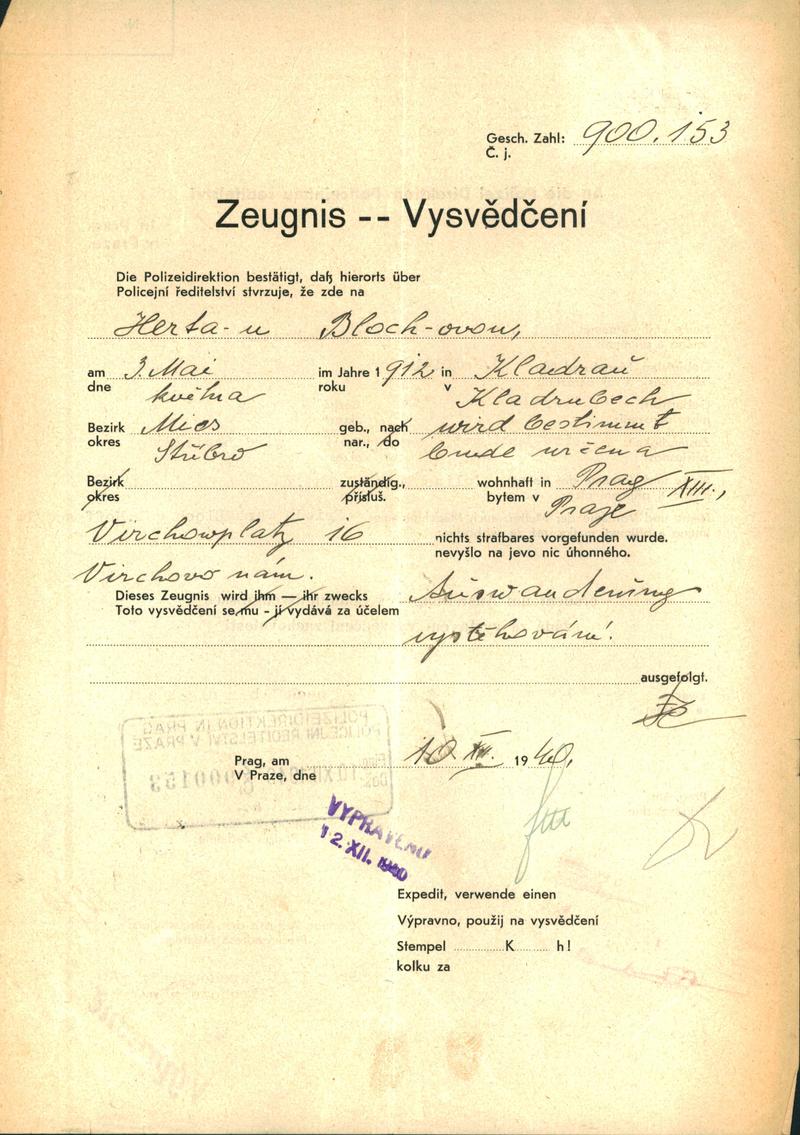 Gesch. Zahl: 900.153
Č. j.
Zeugnis -- Vysvědčení
Die Polizeidirektion bestätigt, daß hierorts über
Policejní ředitelství stvrzuje, že zde na
Herta-u Bloch-ovou,
am 3. Mai im Jahre 1912 in Kladrau
dne května roku v Kladrubech
Bezirk Mies geb., nach wird bestimmt
okres Stříbro nar., do bude určena
Bezirk zuständig., wohnhaft in Prag XIII.,
okres přísluš. bytem v Praze
Virchowplatz 16 nichts strafbares vorgefunden wurde.
nevyšlo na jevo nic úhonného.
Virchovo nám.
Dieses Zeugnis wird ihm — ihr zwecks Auswanderung
Toto vysvědčení se mu - jí vydává za účelem
vystěhování.
ausgefolgt.
POLIZEIDIREKTION IN PRAG
POLICEJNÍ ŘEDITELSTVÍ V PRAZE
Prag, am 10 XII. 1940.
V Praze, dne
VYPRAVENO
12. XII. 1940
Expedit, verwende einen
Výpravno, použij na vysvědčení
Stempel K h!
kolku za